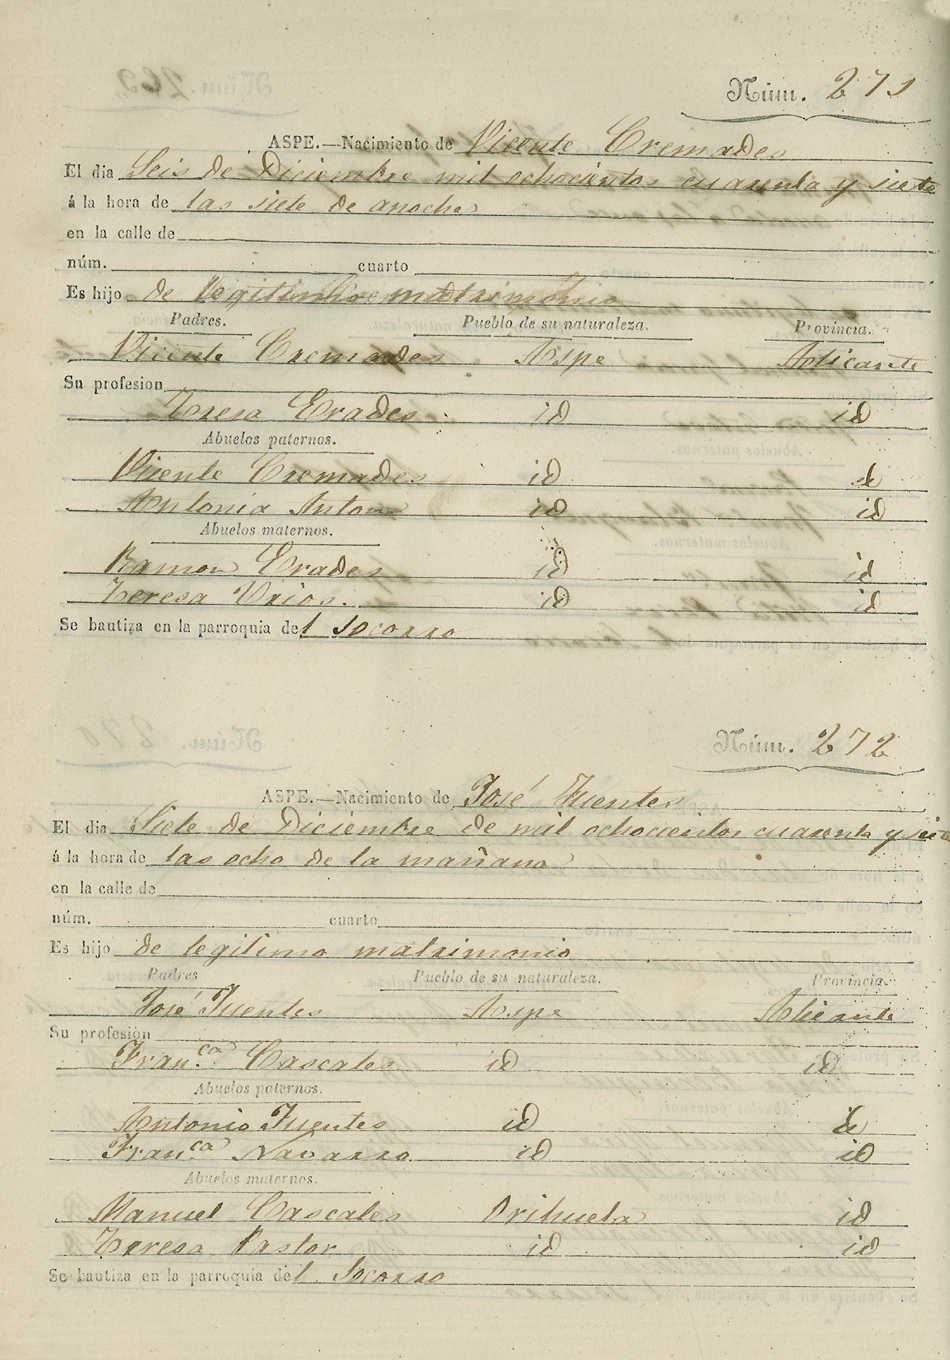 Núm. 271
ASPE.—Nacimiento de Vicente Cremades
El dia Seis de Diciembre mil ochocientos cuarenta y siete
á la hora de las siete de anoche
en la calle de
núm. cuarto
Es hijo de legitimo matrimonio
Padres. Pueblo de su naturaleza. Provincia.
Vicente Cremades Aspe Alicante
Su profesion
Teresa Erades id id
Abuelos paternos.
Vicente Cremades id id
Antonia Anton id id
Abuelos maternos.
Ramon Erades id id
Teresa Urios. id id
Se bautiza en la parroquia del Socorro
Núm. 272
ASPE.—Nacimiento de José Fuentes
El dia Siete de Diciembre de mil ochocientos cuarenta y siete
á la hora de las ocho de la mañana
en la calle de
núm. cuarto
Es hijo de legitimo matrimonio
Padres Pueblo de su naturaleza. Provincia.
José Fuentes Aspe Alicante
Su profesión
Fran.ca Cascales id id
Abuelos paternos.
Antonio Fuentes id id
Fran.ca Navarro id id
Abuelos maternos.
Manuel Cascales Orihuela id
Teresa Pastor id id
Se bautiza en la parroquia del Socorro